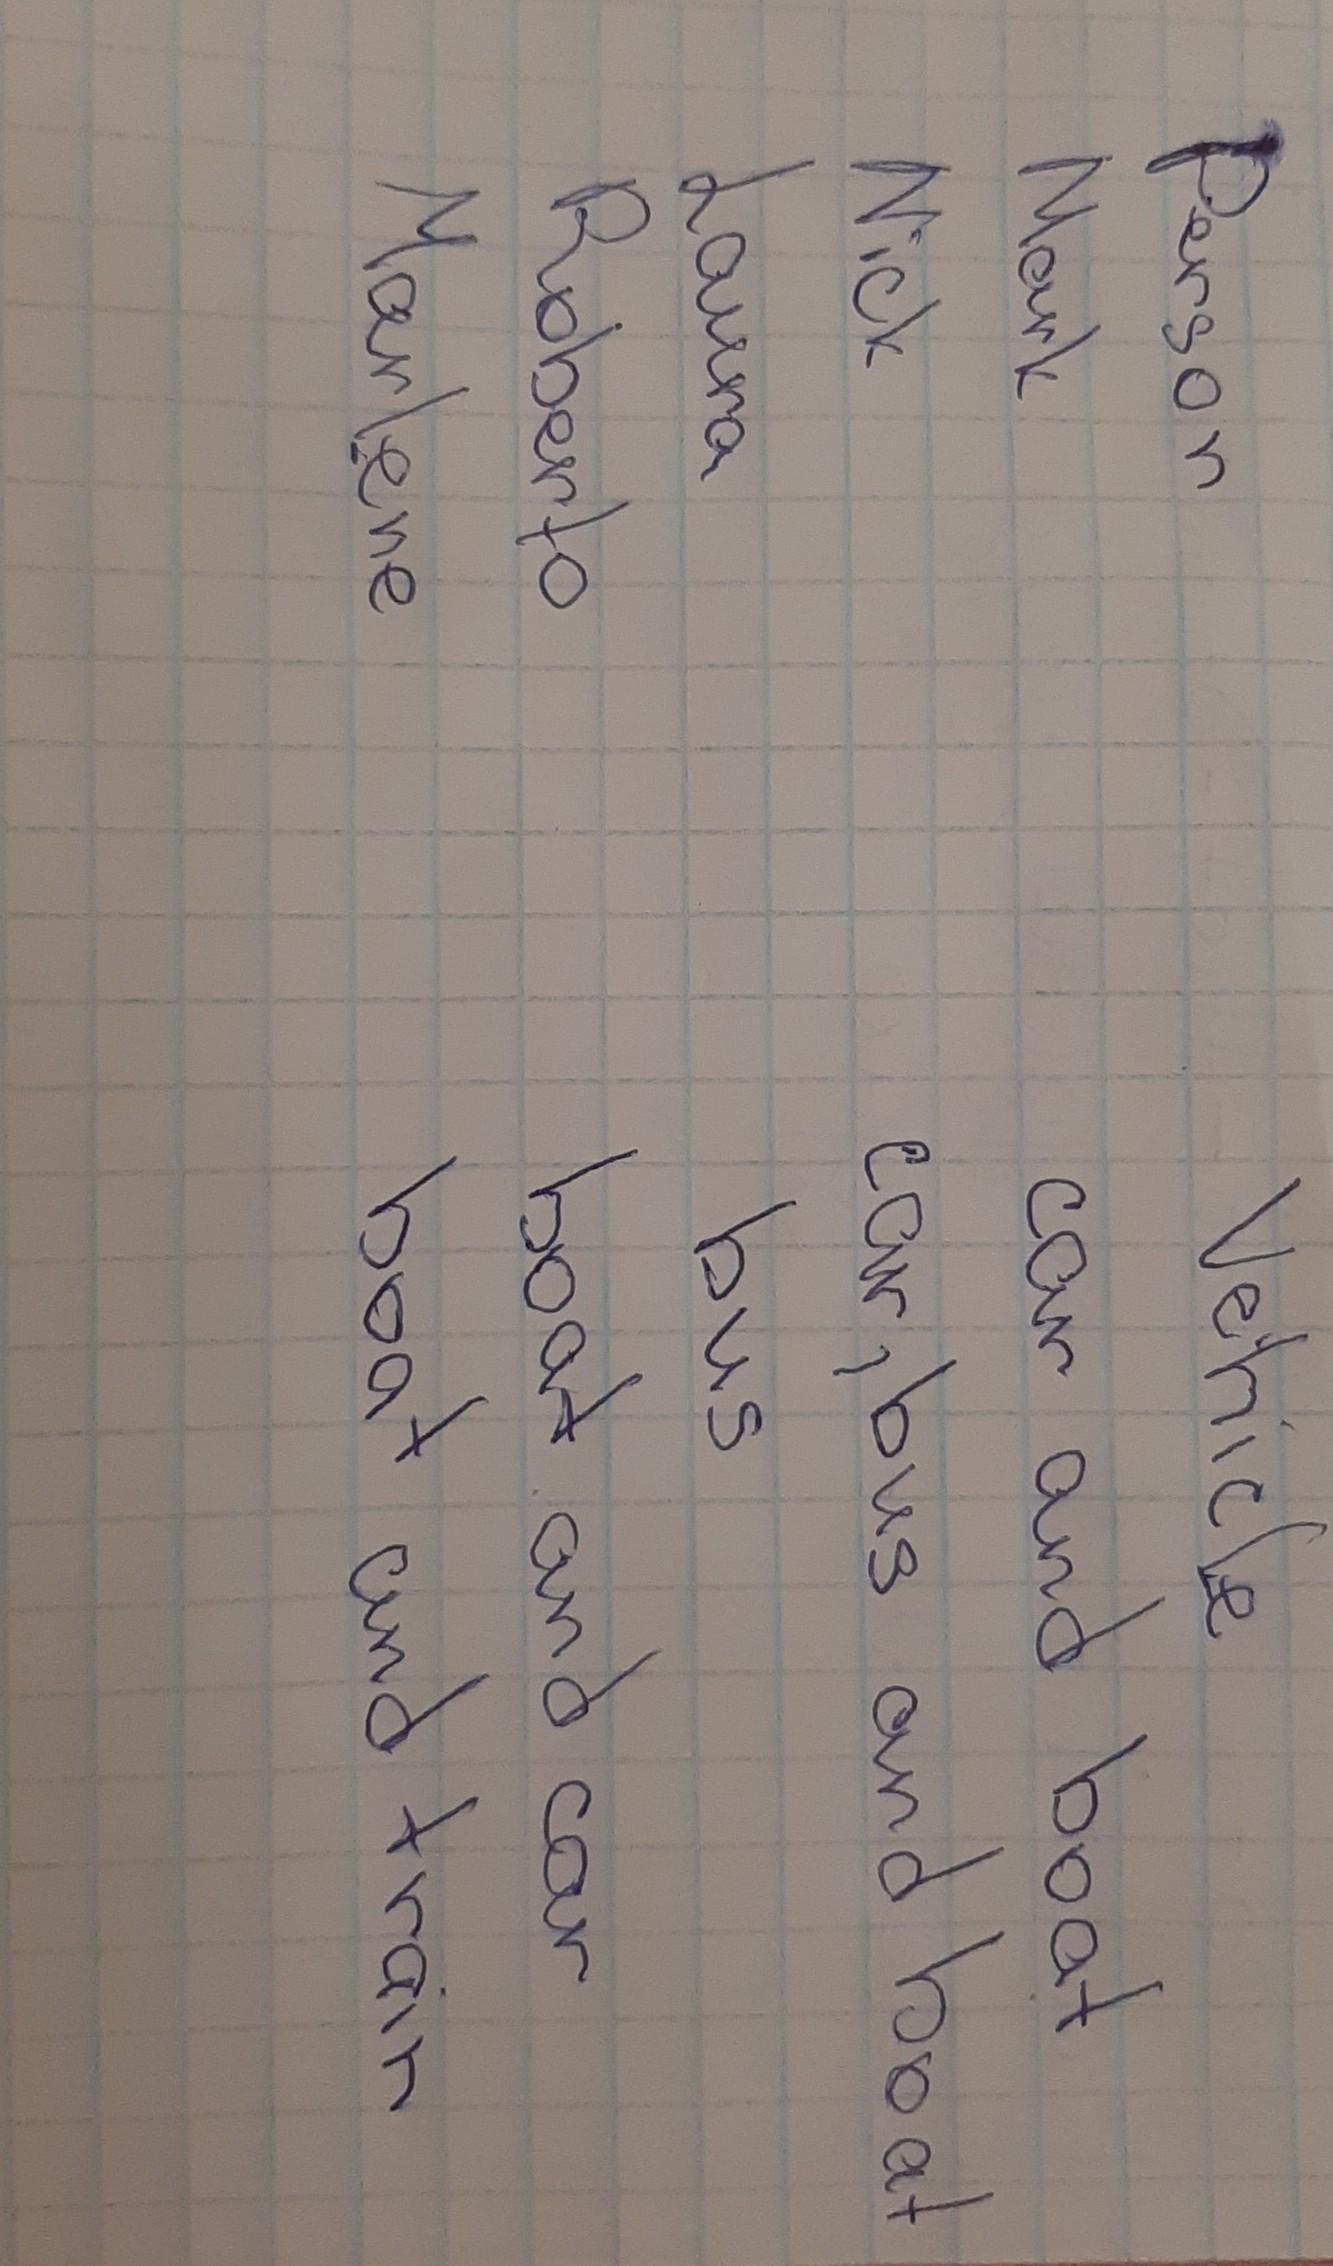 Person Vehicle
Mark car and boat
Nick car, bus and boat
Laura bus
Roberto boat and car
Marlene boat and train